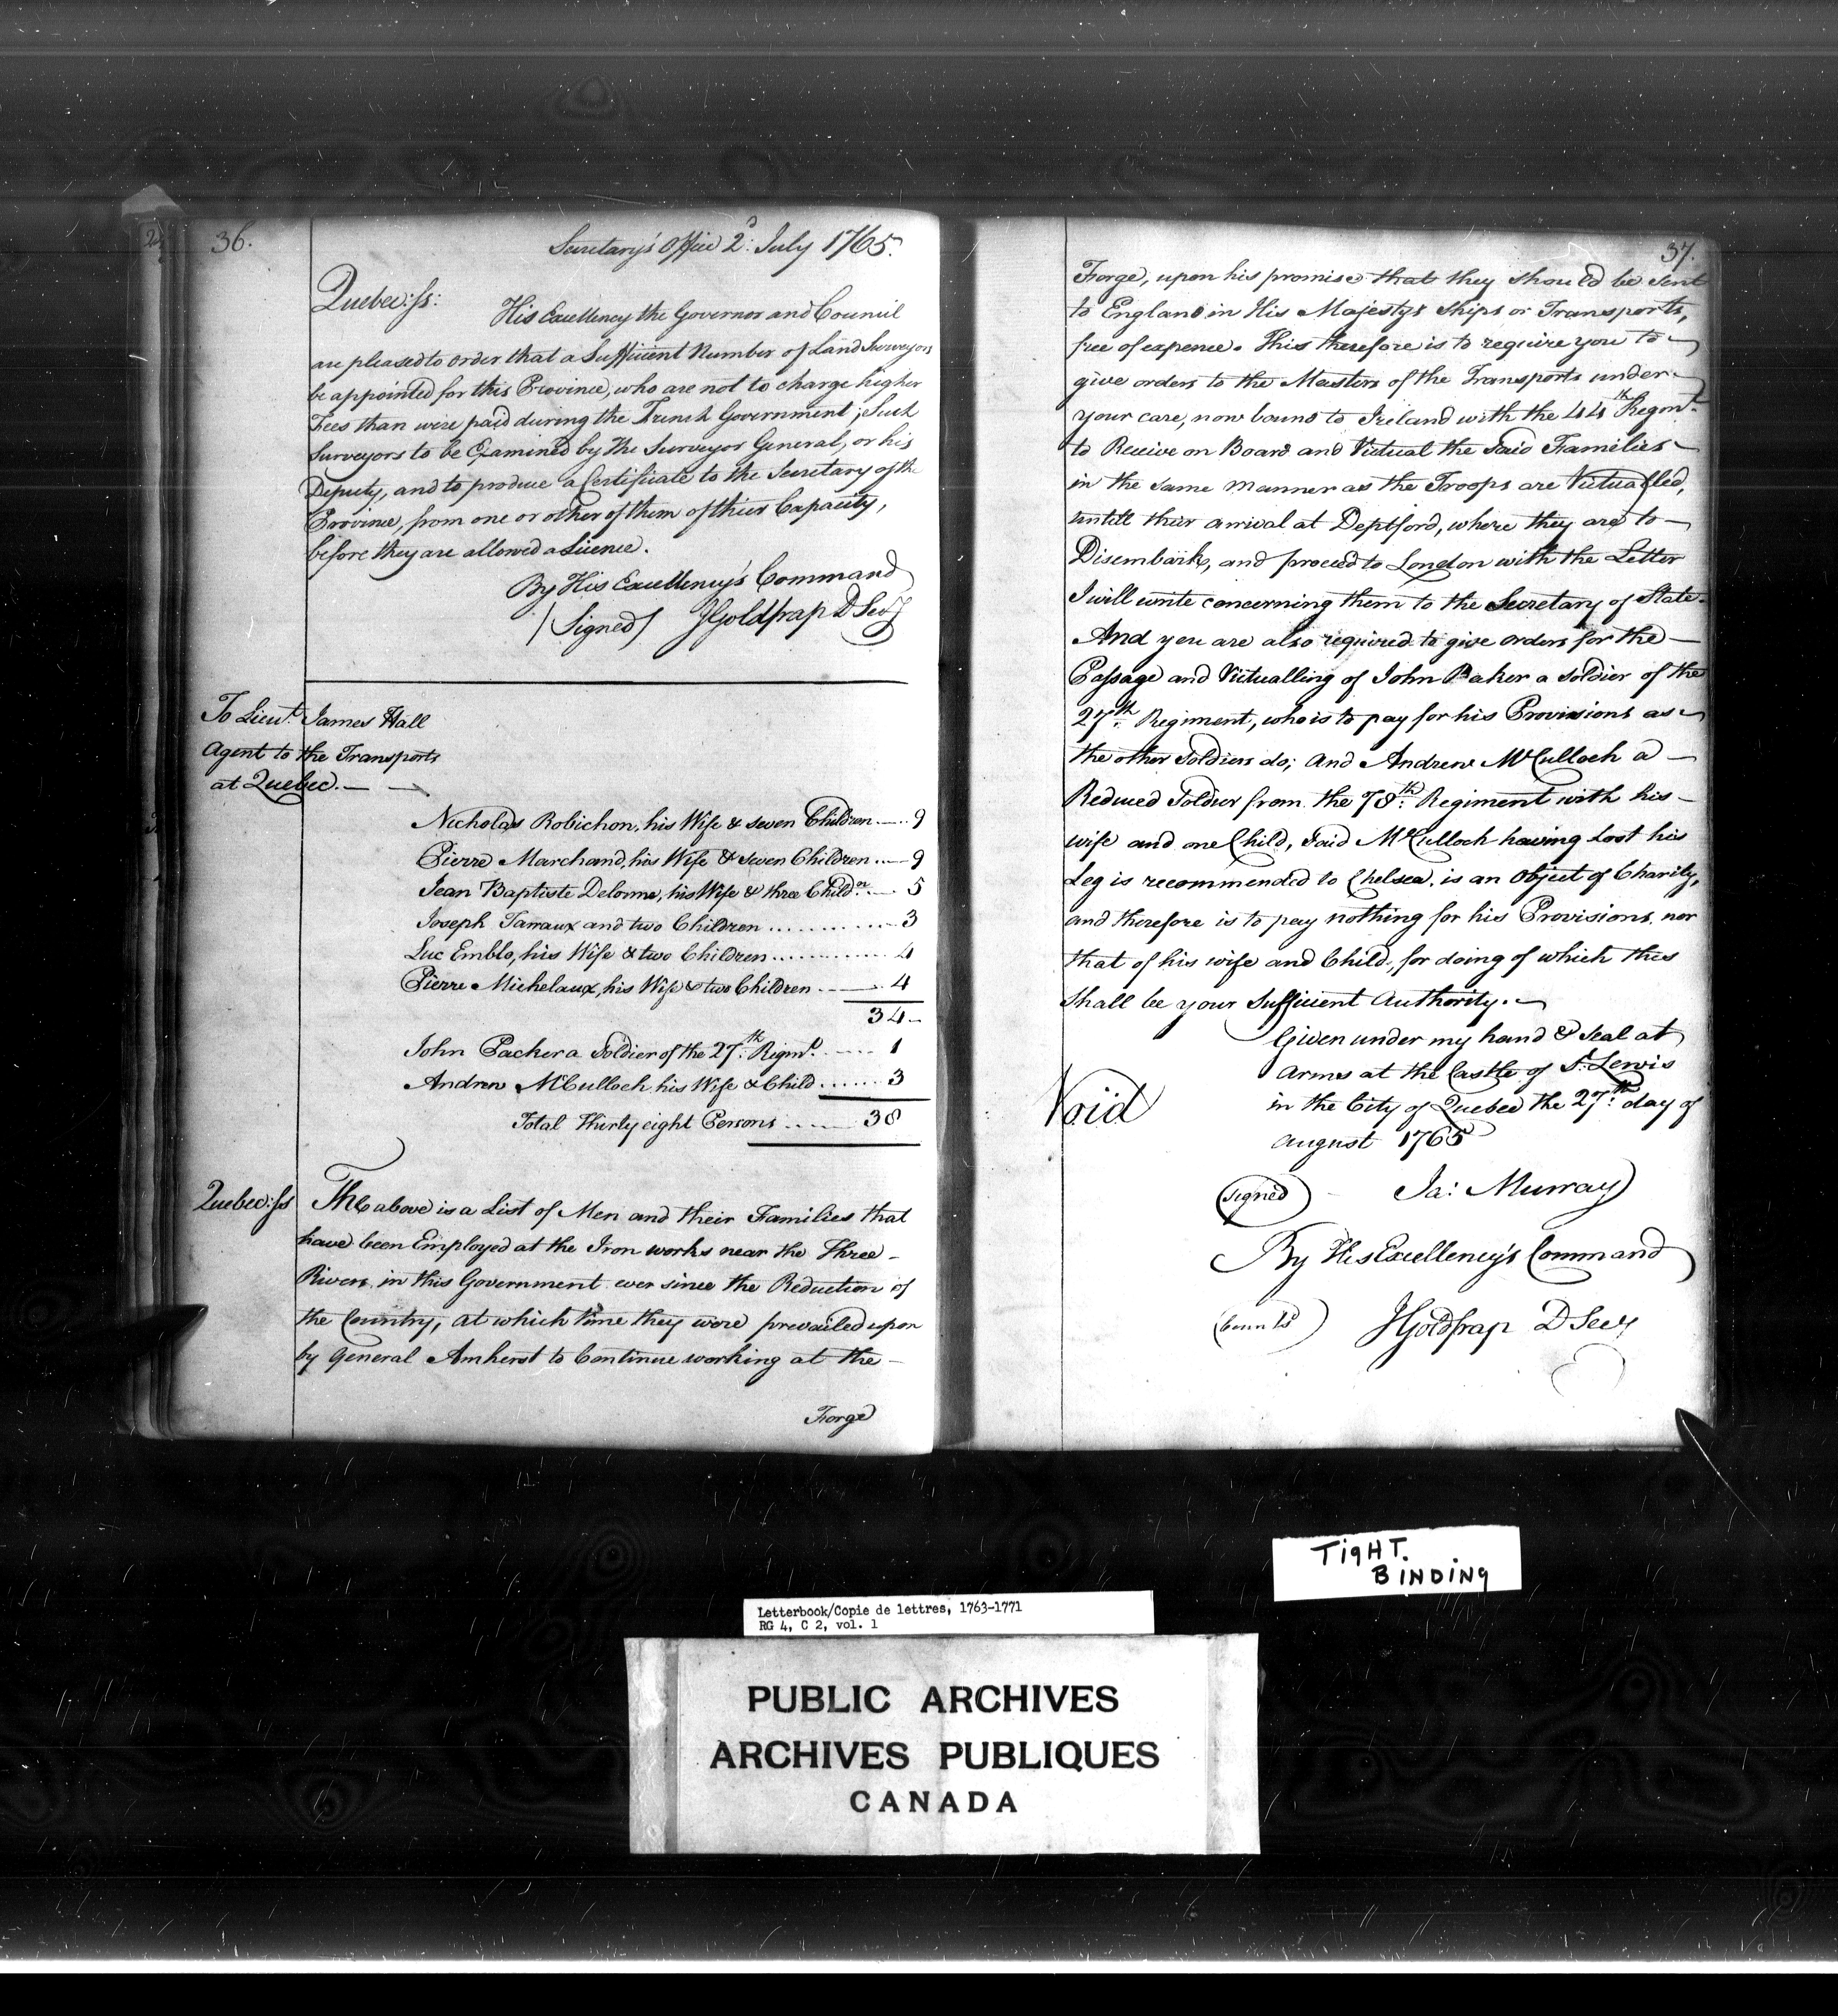 36.
Secretary's Office 2d: July 1765.
Quebec: ss:
His Excellency the Governor and Council
are pleased to order that a Sufficient Number of Land Surveyors
be appointed for this Province, who are not to charge higher
Fees than were paid during the French Government; Such
Surveyors to be Examined by the Surveyor General, or his
Deputy, and to produce a Certificate to the Secretary of the
Province, from one or other of them of their Capacity,
before they are allowed a Licence.
By His Excellency's Command
/Signed/ JGoldfrap D Secy
To Lieut. James Hall
Agent to the Transports
at Quebec. — —
Nicholas Robichon, his Wife & seven Children .... 9
Pierre Marchand, his Wife & seven Children .... 9
Jean Baptiste Delorme, his Wife & three Childn. .... 5
Joseph Tarraux and two Children ............ 3
Luc Emblo, his Wife & two Children ............ 4
Pierre Michelaux, his Wife & two Children .... 4
34
John Packer a Soldier of the 27th: Regmt. ...... 1
Andrew McCulloch his Wife & Child ....... 3
Total Thirty eight Persons ....... 38
Quebec: ss The above is a List of Men and their Families that
have been Employed at the Iron works near the Three
Rivers in this Government ever since the Reduction of
the Country, at which time they were prevailed upon
by General Amherst to Continue working at the
Forge
37.
Forge, upon his promise that they should be sent
to England in His Majestys Ships or Transports,
free of expence. This therefore is to require you to
give orders to the Masters of the Transports under
your care, now bound to Ireland with the 44th Regmt.
to Receive on Board and Victual the Said Families
in the same manner as the Troops are Victualled,
untill their arrival at Deptford, where they are to
Disembark, and proceed to London with the Letter
I will write concerning them to the Secretary of State.
And you are also required to give orders for the
Passage and Victualling of John Baker a Soldier of the
27th: Regiment, who is to pay for his Provisions as
the other Soldiers do; and Andrew McCulloch a
Reduced Soldier from the 78th: Regiment with his
wife and one Child, Said McCulloch having lost his
Leg is recommended to Chelsea, is an Object of Charity,
and therefore is to pay nothing for his Provisions nor
that of his wife and Child, for doing of which this
Shall be your Sufficient Authority.
Given under my hand & Seal at
Arms at the Castle of St. Lewis
Void
in the City of Quebec the 27th: day of
August 1765
(signed) Ja: Murray
By His Excellency's Command
JGoldfrap D Secy
TigHT.
BINDING
Letterbook/Copie de lettres, 1763-1771
RG 4, C 2, vol. 1
PUBLIC ARCHIVES
ARCHIVES PUBLIQUES
CANADA